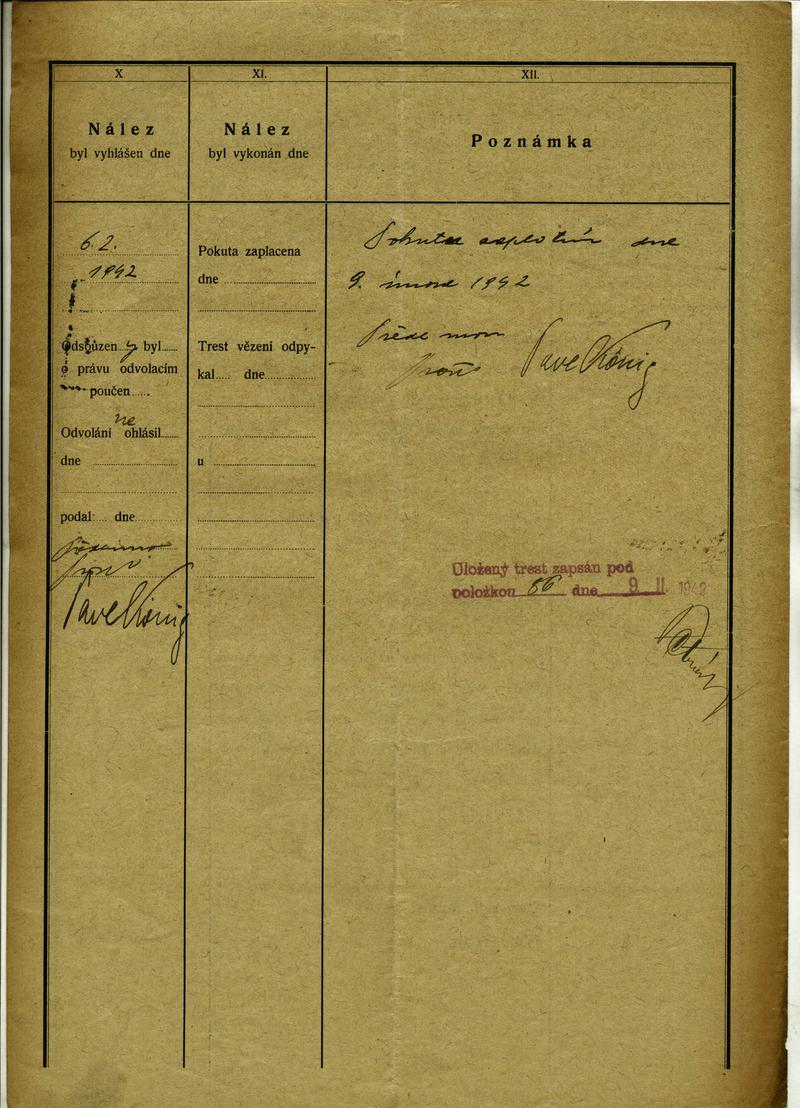 X
Nález
byl vyhlášen dne
6. 2.
1942
Odsouzen ý byl
o právu odvolacím
poučen
ne
Odvolání ohlásil
dne
podal dne
Pavel König
XI.
Nález
byl vykonán dne
Pokuta zaplacena
dne
Trest vězení odpy-
kal dne
u
XII.
Poznámka
Pokutu zaplatím dne
9. února 1942
Přede mnou
Pavel König
Uložený trest zapsán pod
položkou 86 dne 9 II. 1942